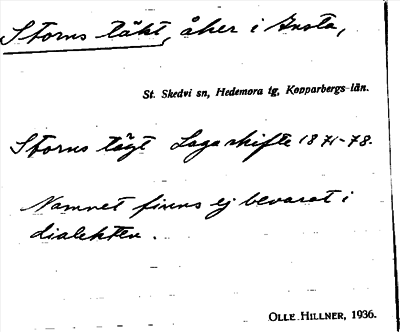 Storns täkt, åker i Knsta,
St. Skedvi sn, Hedemora tg, Kopparbergs län.
Storns tägt Laga skifte 1871-78.
Namnet finns ej bevarat i
dialekten.
OLLE HILLNER, 1936.